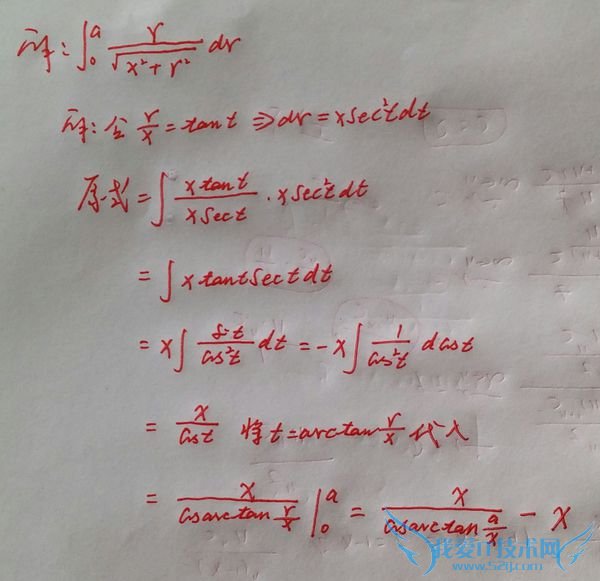 解: ∫₀ᵃ r/√(x²+r²) dr
解: 令 r/x = tan t ⇒ dr = x sec²t dt
原式 = ∫ (x tan t)/(x sec t) · x sec²t dt
= ∫ x tan t sec t dt
= x ∫ (sin t)/(cos²t) dt = -x ∫ 1/(cos²t) d cos t
= x/(cos t) 将 t = arctan r/x 代入
= x/(cos arctan r/x) |₀ᵃ = x/(cos arctan a/x) - x
我爱IT技术网
www.52ij.com